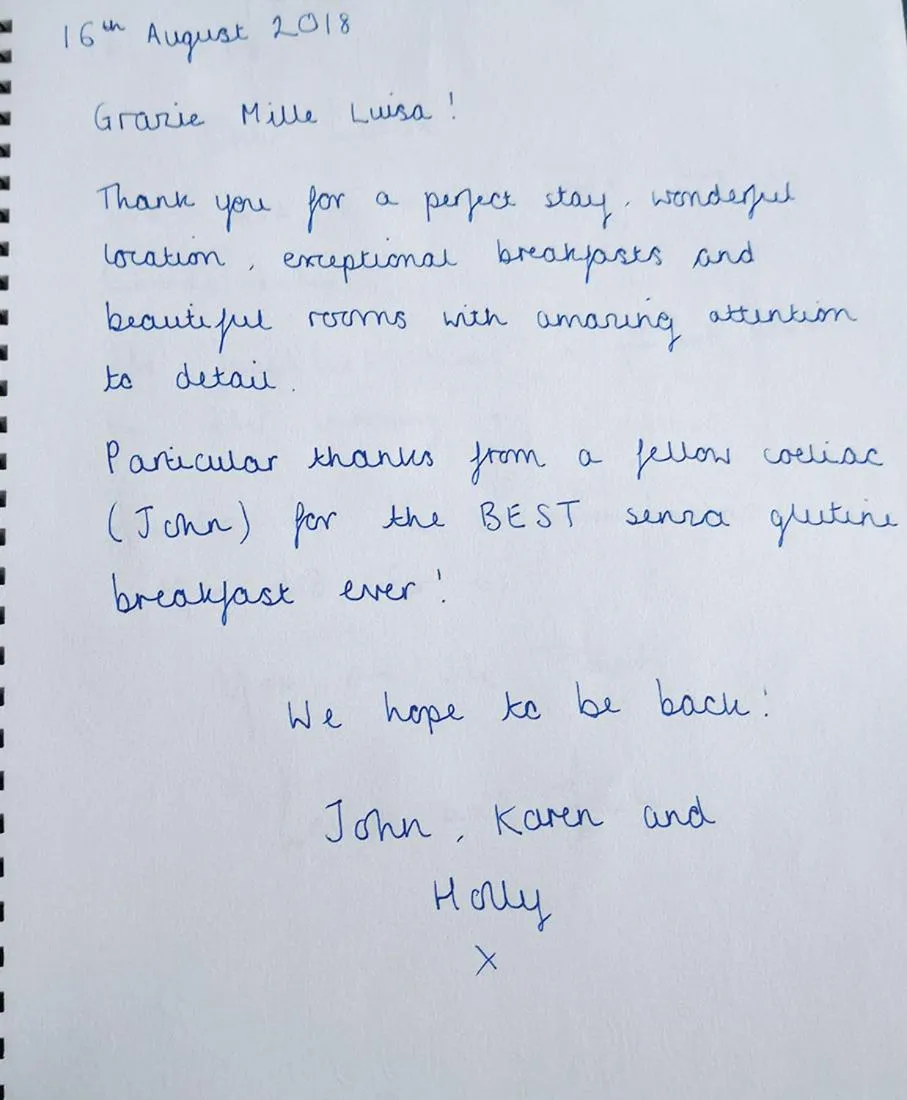 16th August 2018
Grazie Mille Luisa!
Thank you for a perfect stay, wonderful
location, exceptional breakfasts and
beautiful rooms with amazing attention
to detail.
Particular thanks from a fellow coeliac
(John) for the BEST senza glutine
breakfast ever!
We hope to be back!
John, Karen and
Holly
x